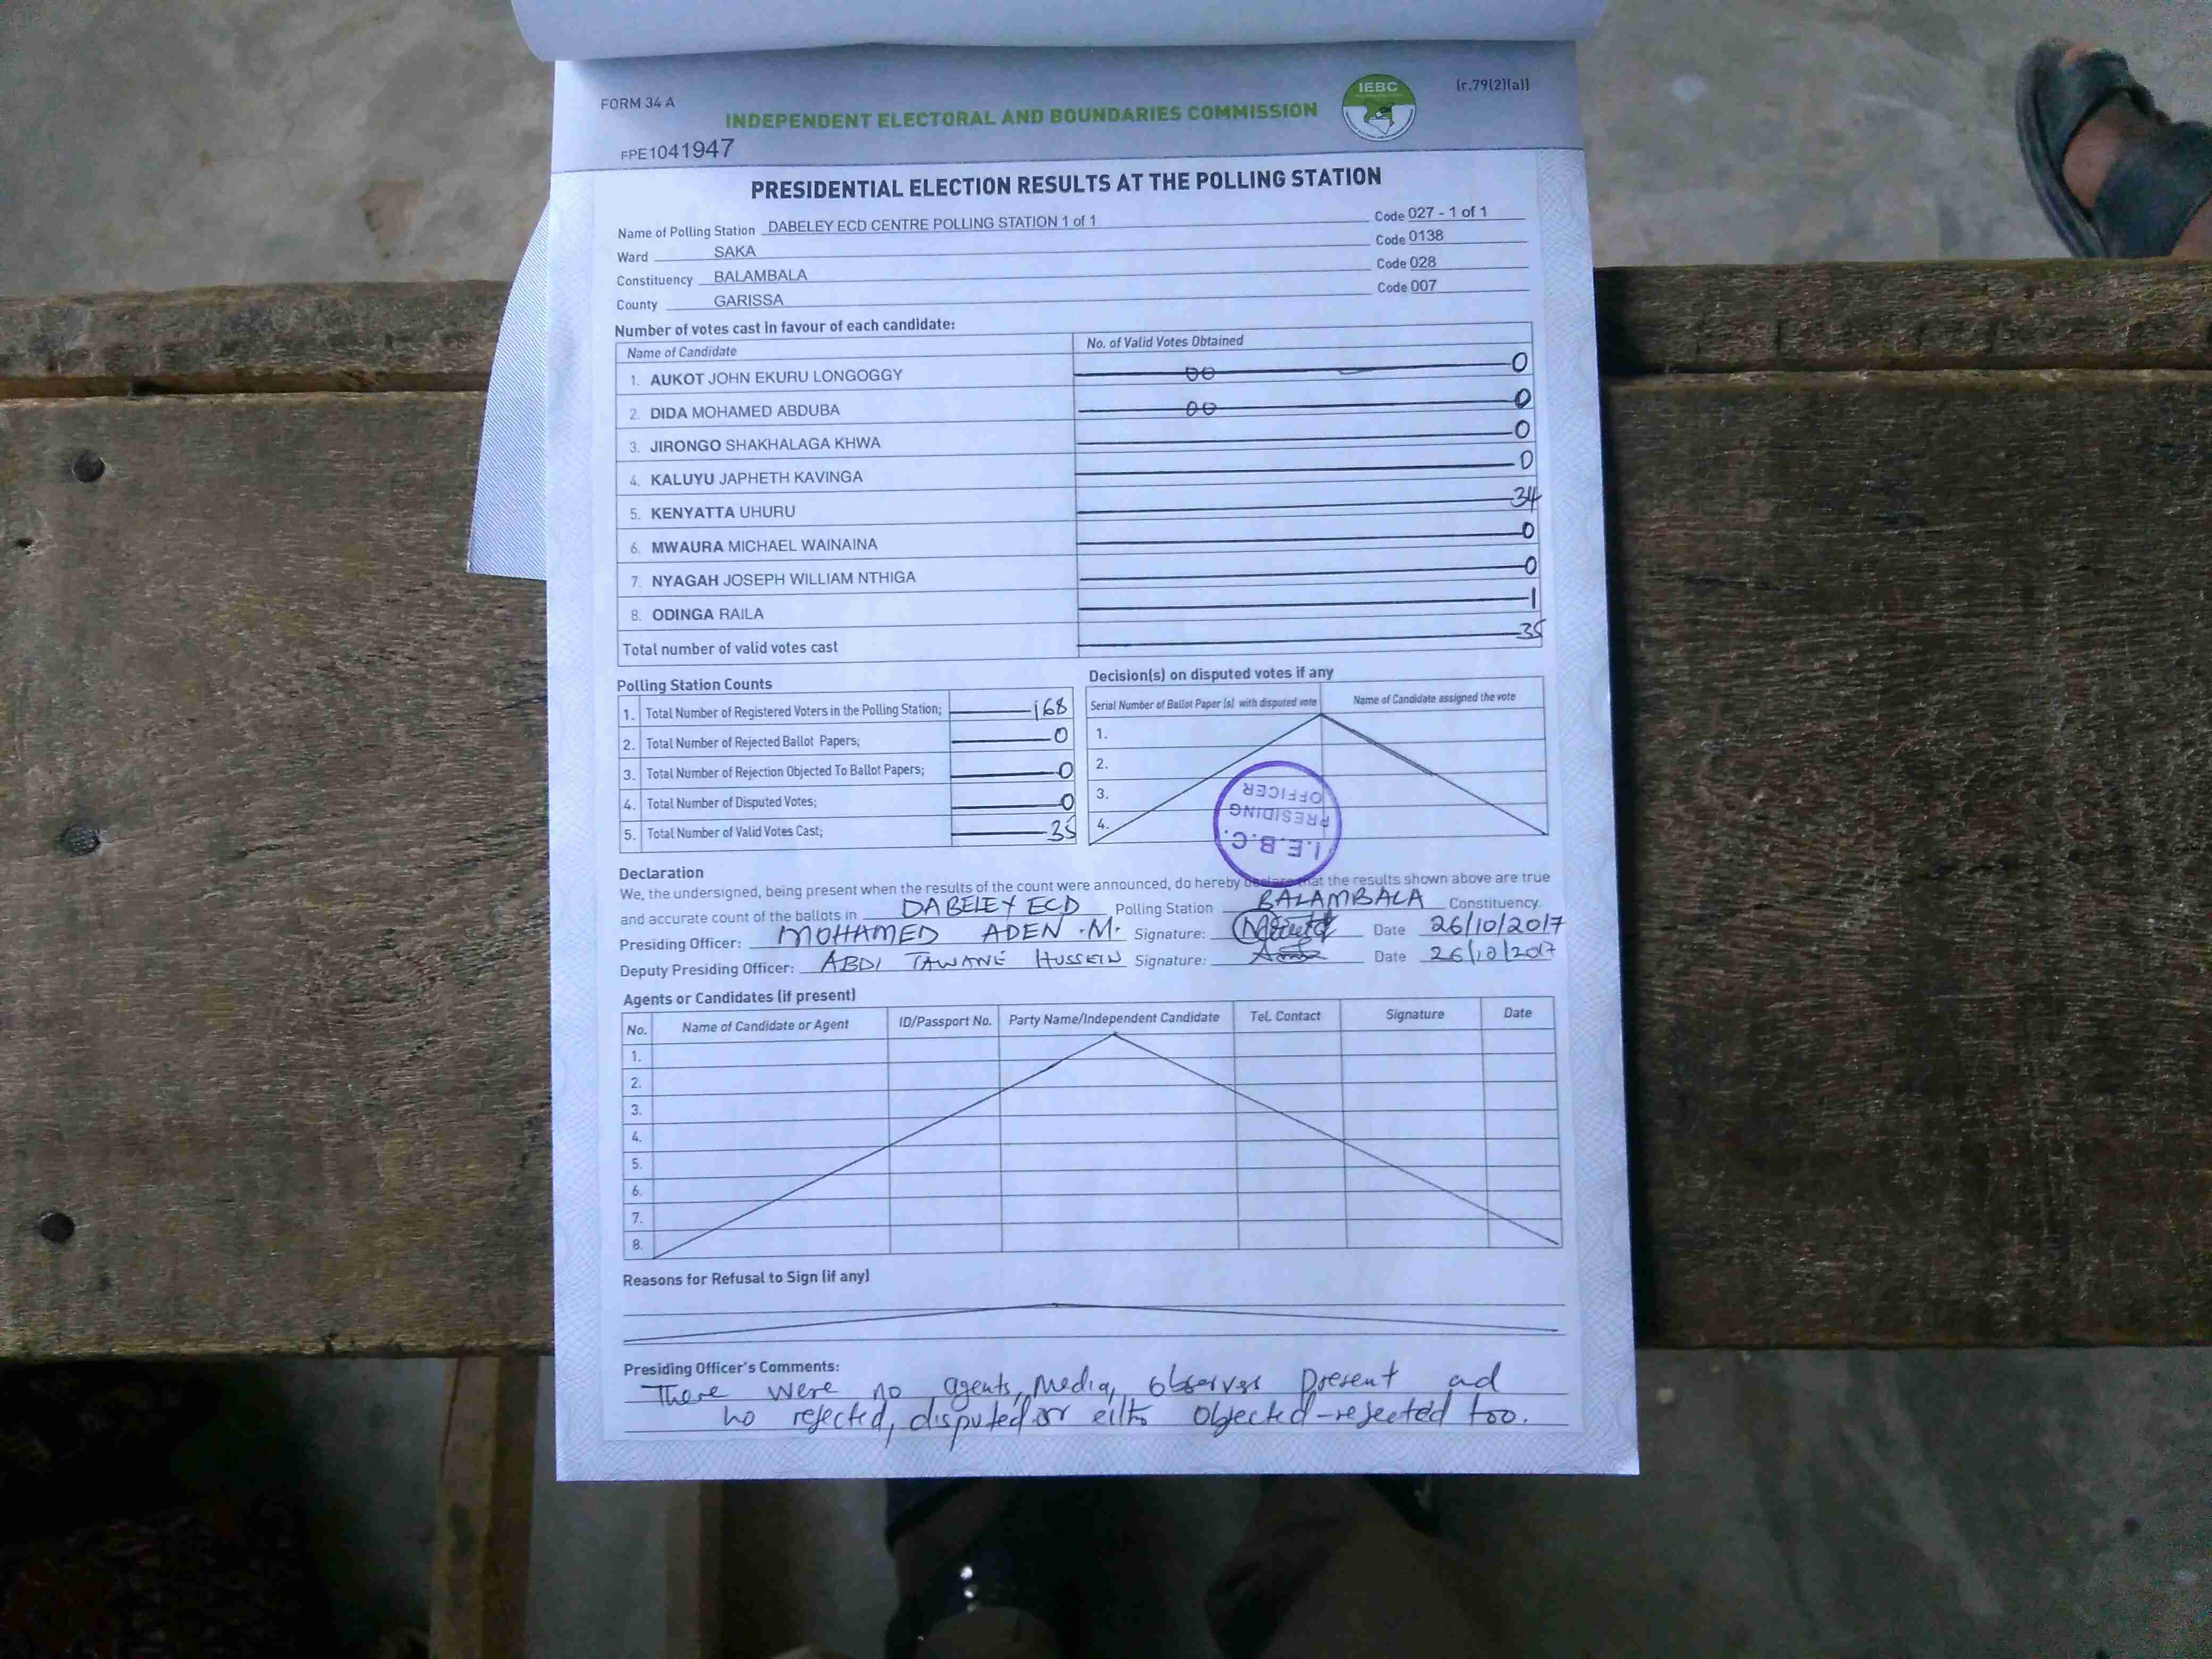 FORM 34 A
(r.79(2)(a))
IEBC
INDEPENDENT ELECTORAL AND BOUNDARIES COMMISSION
FPE1041947
PRESIDENTIAL ELECTION RESULTS AT THE POLLING STATION
Name of Polling Station DABELEY ECD CENTRE POLLING STATION 1 of 1 Code 027 - 1 of 1
Ward SAKA Code 0138
Constituency BALAMBALA Code 028
County GARISSA Code 007
Number of votes cast in favour of each candidate:
Name of Candidate No. of Valid Votes Obtained
1. AUKOT JOHN EKURU LONGOGGY 00 0
2. DIDA MOHAMED ABDUBA 00 0
3. JIRONGO SHAKHALAGA KHWA 0
4. KALUYU JAPHETH KAVINGA 0
5. KENYATTA UHURU 34
6. MWAURA MICHAEL WAINAINA 0
7. NYAGAH JOSEPH WILLIAM NTHIGA 0
8. ODINGA RAILA 1
Total number of valid votes cast 35
Polling Station Counts
1. Total Number of Registered Voters in the Polling Station; 168
2. Total Number of Rejected Ballot Papers; 0
3. Total Number of Rejection Objected To Ballot Papers; 0
4. Total Number of Disputed Votes; 0
5. Total Number of Valid Votes Cast; 35
Decision(s) on disputed votes if any
Serial Number of Ballot Paper (s) with disputed vote Name of Candidate assigned the vote
1.
2.
3.
4.
I.E.B.C.
PRESIDING
OFFICER
Declaration
We, the undersigned, being present when the results of the count were announced, do hereby declare that the results shown above are true
and accurate count of the ballots in DABELEY ECD Polling Station BALAMBALA Constituency.
Presiding Officer: MOHAMED ADEN .M. Signature: Date 26/10/2017
Deputy Presiding Officer: ABDI TAWANE HUSSEIN Signature: Date 26/10/2017
Agents or Candidates (if present)
No. Name of Candidate or Agent ID/Passport No. Party Name/Independent Candidate Tel. Contact Signature Date
1.
2.
3.
4.
5.
6.
7.
8.
Reasons for Refusal to Sign (if any)
Presiding Officer's Comments:
There were no agents, media, observes present ad
no rejected, disputed or objected-rejected too.